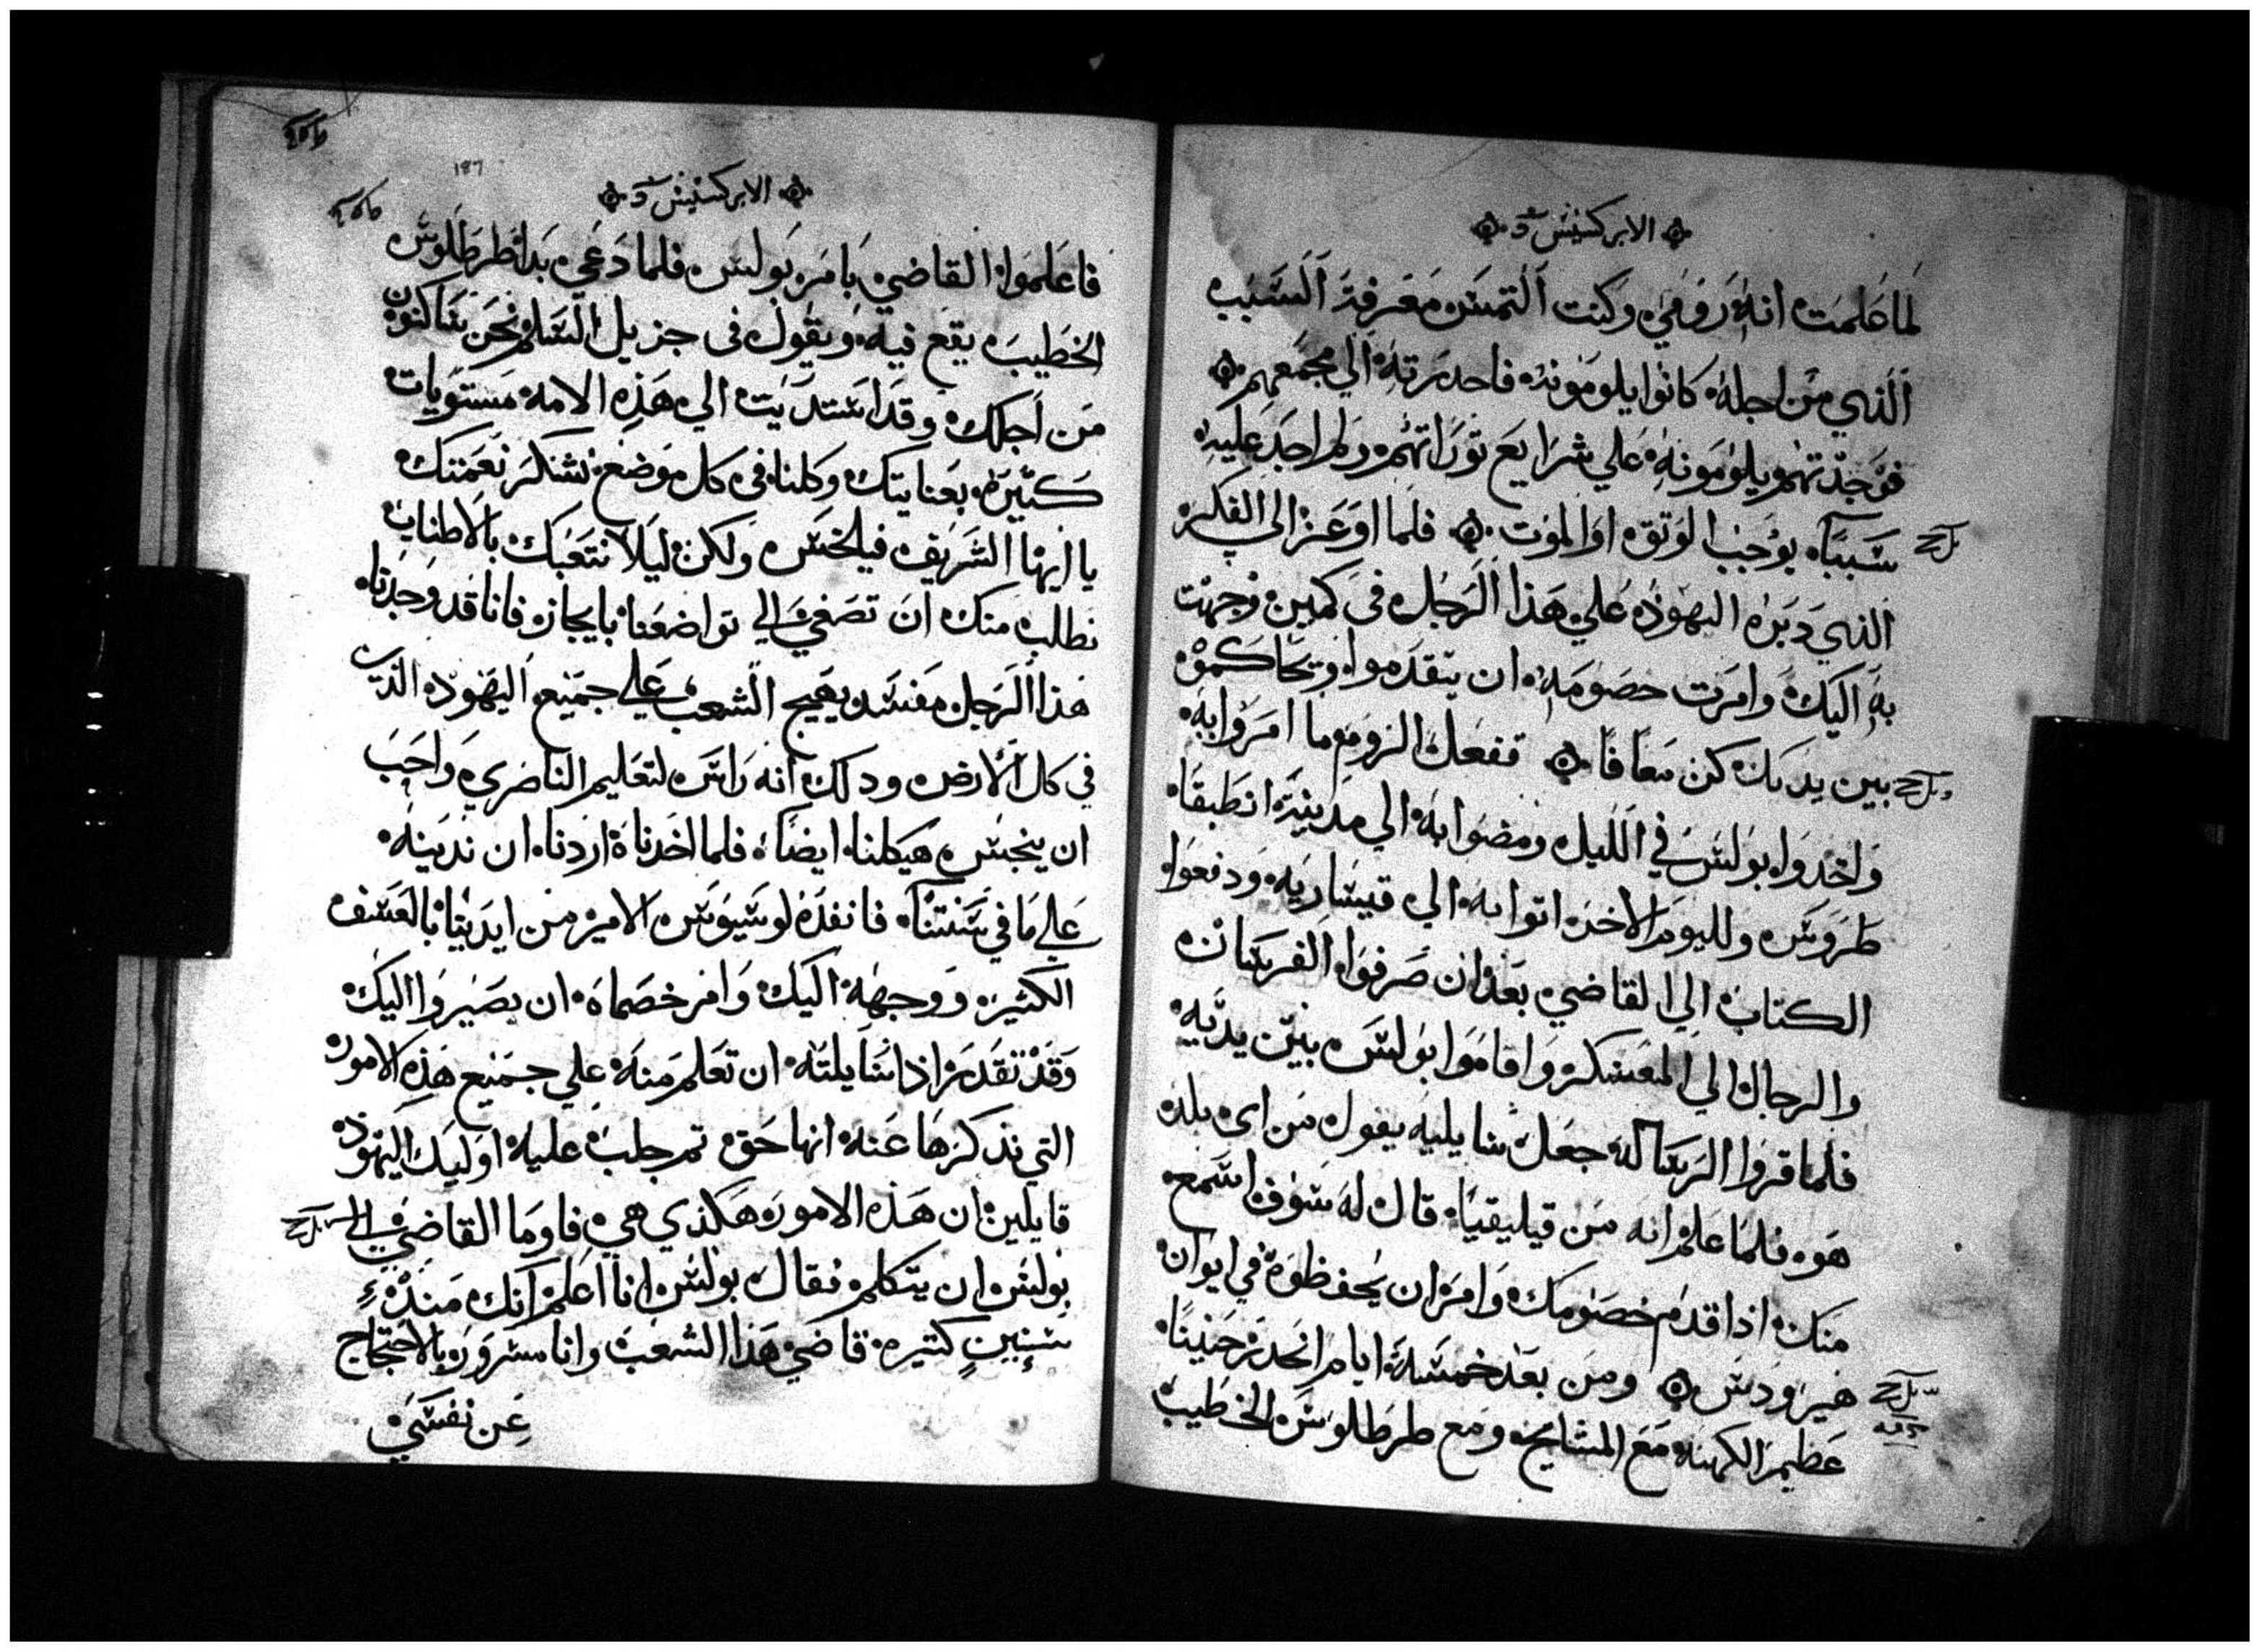 الابركسيس
لما علمت انه رومي وكنت التمس معرفة السبب
الذي من اجله كانوا يلومونه فاحدرته الي مجمعهم
فوجدتهم يلومونه علي شرايع توراتهم ولم اجد عليه
سببا يوجب الوتق او الموت فلما اوعز الي الفكر
الذي دبره اليهود علي هذا الرجل في كمين وجهت
به اليك وامرت خصومه ان يتقدموا ويتحاكموا
بين يديك كن معافا ففعل الروم ما امروا به
واخدوا بولس في الليل ومضوا به الي مدينة انطبقا
طروس ولليوم الاخر اتوا به الي قيساريه ودفعوا
الكتاب الي القاضي بعد ان صرفوا الفرسان
والرجال الي المعسكر واقاموا بولس بين يديه
فلما قروا الرساله جعل سايليه يقول من اي بلد
هو فلما علم انه من قيليقيا قال له سوف اسمع
منك اذا قدم خصومك وامر ان يحفظوه في ايوان
هيرودس ومن بعد خمسة ايام انحدر حنينا
عظيم الكهنه مع المشايخ ومع طرطلوس الخطيب
١٨٦
الابركسيس
فاعلموا القاضي بامر بولس فلما دعي بدا طرطلوس
الخطيب يقع فيه ويقول في جزيل السلم نحن ساكنون
من اجلك وقد استديت الي هذه الامه مستويات
كتيره بعنايتك وكلنا في كل موضع نشكر نعمتك
يا ايها الشريف فيلخس ولكن ليلا نتعبك بالاطناب
نطلب منك ان تصغي الي تواضعنا بايجاز فانا قد وجدنا
هذا الرجل مفسد يهيج الشعب علي جميع اليهود الذين
في كل الارض ودلك انه راس لتعليم الناصري واحب
ان ينجس هيكلنا ايضا فلما اخدناه اردنا ان ندينه
علي ما في سنتنا فانفده لوسيوس الامير من ايدينا بالعسف
الكتير ووجهه اليك وامر خصماه ان يصيروا اليك
وقد تقدر اذا سايلته ان تعلم منه علي جميع هذه الامور
التي نذكرها عنه انها حق تم جلب عليه اوليك اليهود
قايلين ان هذه الامور هكذي هي فاوما القاضي الي
بولس ان يتكلم فقال بولس انا اعلم انك مند
سنين كتيره قاضي هذا الشعب وانا مسرور بالاحتجاج
عن نفسي